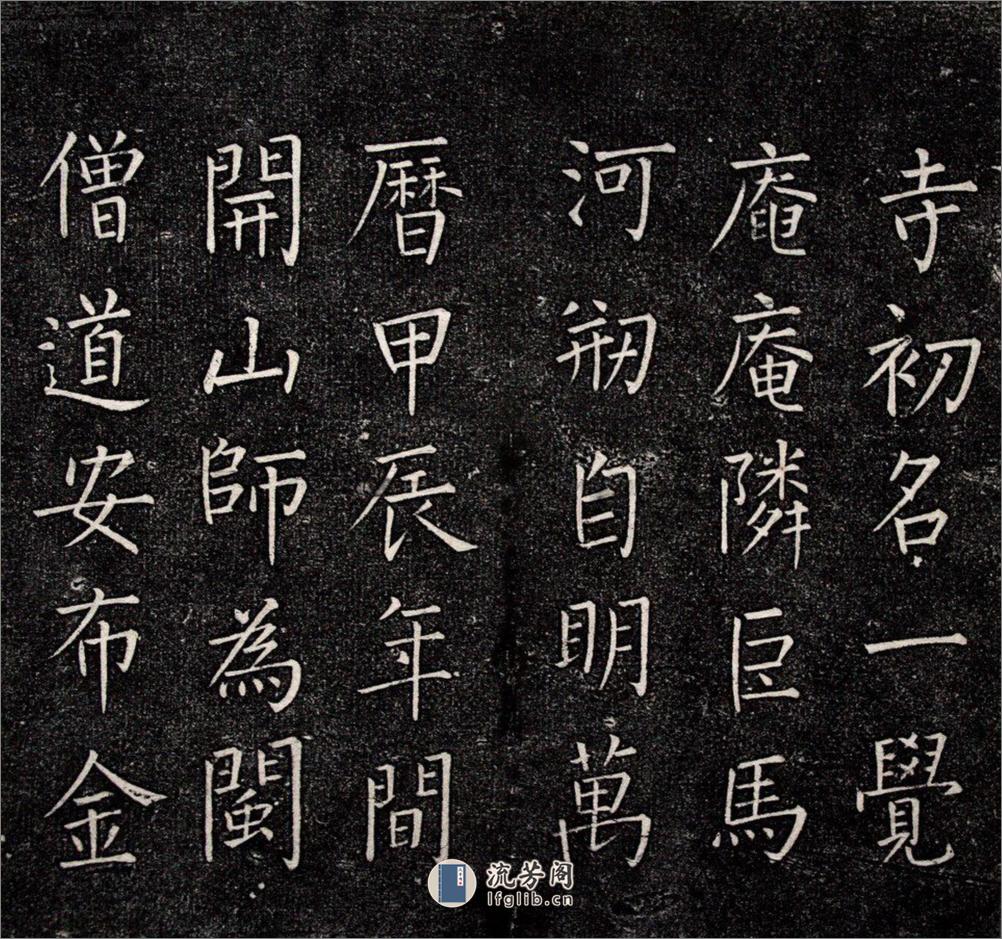 寺初名一覺
庵庵隣臣馬
河剏自明萬
曆甲辰年間
開山師為閩
僧道安布金
流芳阁
lfglib.cn